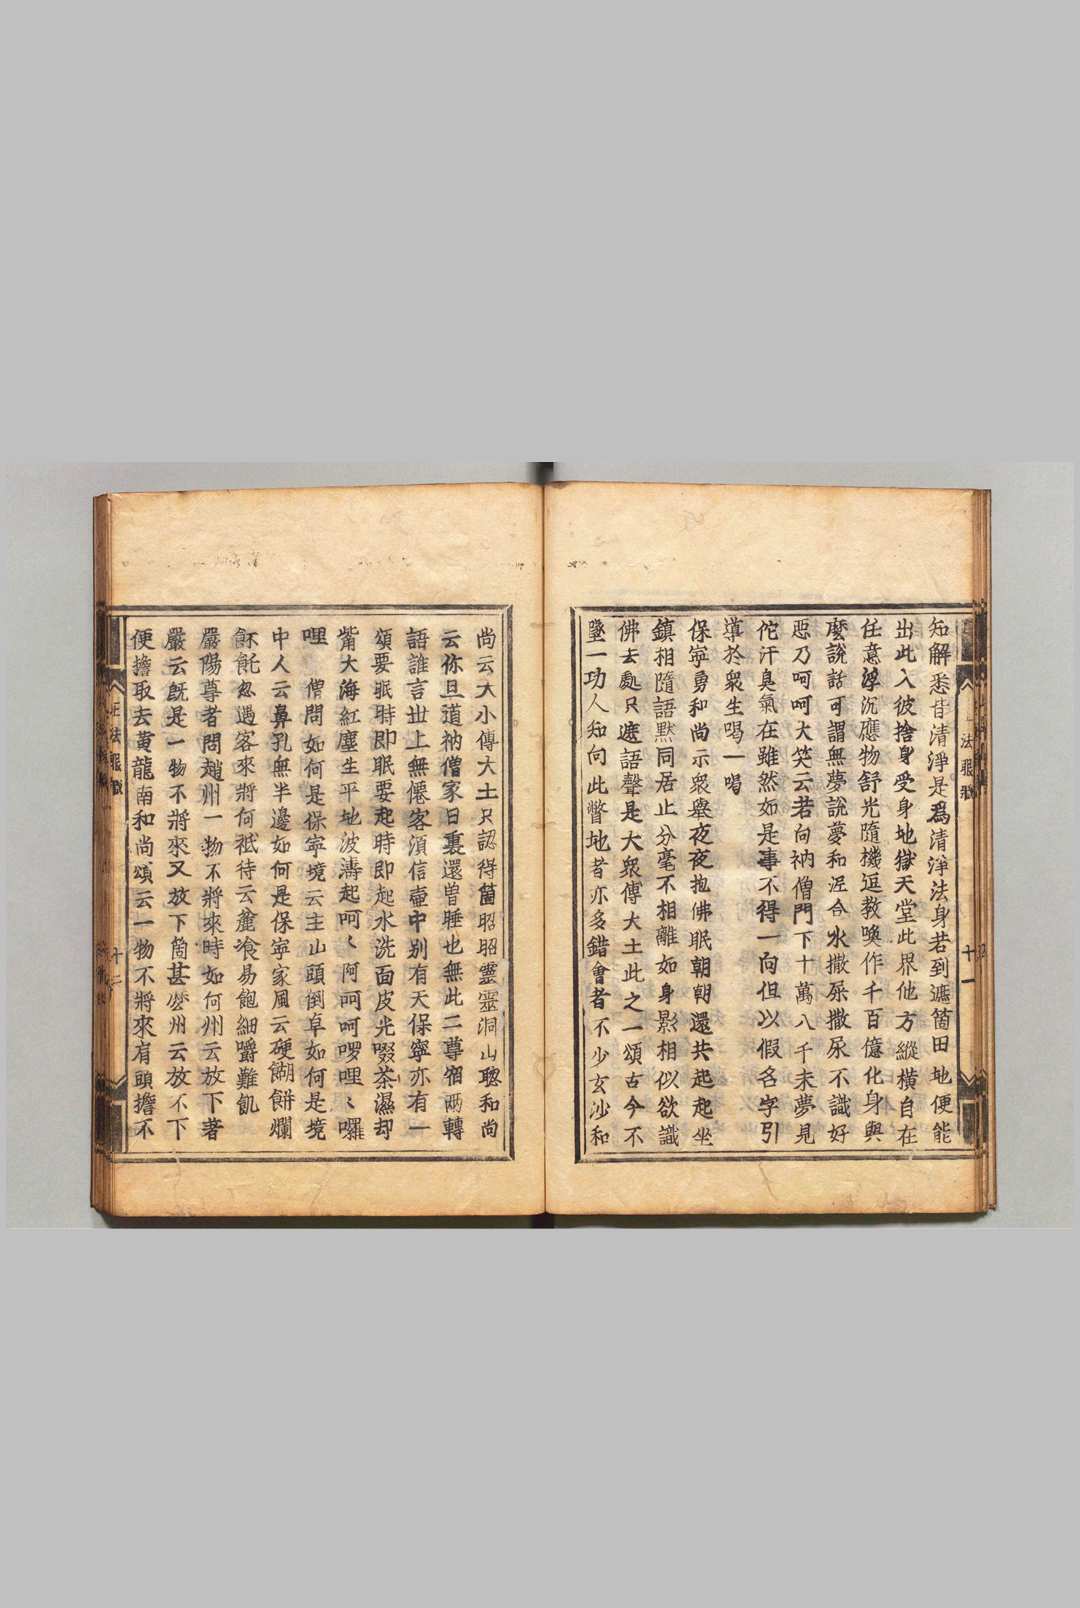 知解悉皆清淨是爲清淨法身若到遮箇田地便能
出此入彼捨身受身地獄天堂此界他方縱橫自在
任意浮沉應物舒光隨機逗教喚作千百億化身與
麼說話可謂無夢說夢和泥合水撒屎撒尿不識好
惡乃呵呵大笑云若向衲僧門下十萬八千未夢見
佗汗臭氣在雖然如是事不得一向但以假名字引
導於衆生喝一喝
保寧勇和尚示衆擧夜夜抱佛眠朝朝還共起起坐
鎮相隨語黙同居止分毫不相離如身影相似欲識
佛去處只遮語聲是大衆傅大士此之一頌古今不
墜一切人知向此瞥地者亦多錯會者不少玄沙和
法眼藏
十一
尚云大小傅大士只認得箇昭昭靈靈洞山聰和尚
云你且道衲僧家日裏還曾睡也無此二尊宿兩轉
語誰言世上無僊客須信壷中別有天保寧亦有一
頌要眠時即眠要起時即起水洗面皮光啜茶濕却
觜大海紅塵生平地波濤起呵〻阿呵呵啰哩〻囉
哩 僧問如何是保寧境云主山頭倒卓如何是境
中人云鼻孔無半邊如何是保寧家風云硬餬餅爛
飥忽遇客來將何祇待云麄飡易飽細嚼難飢
嚴陽尊者問趙州一物不將來時如何州云放下著
嚴云旣是一物不將來又放下箇甚麽州云放不下
便擔取去黃龍南和尚頌云一物不將來肩頭擔不
正法眼藏
十二